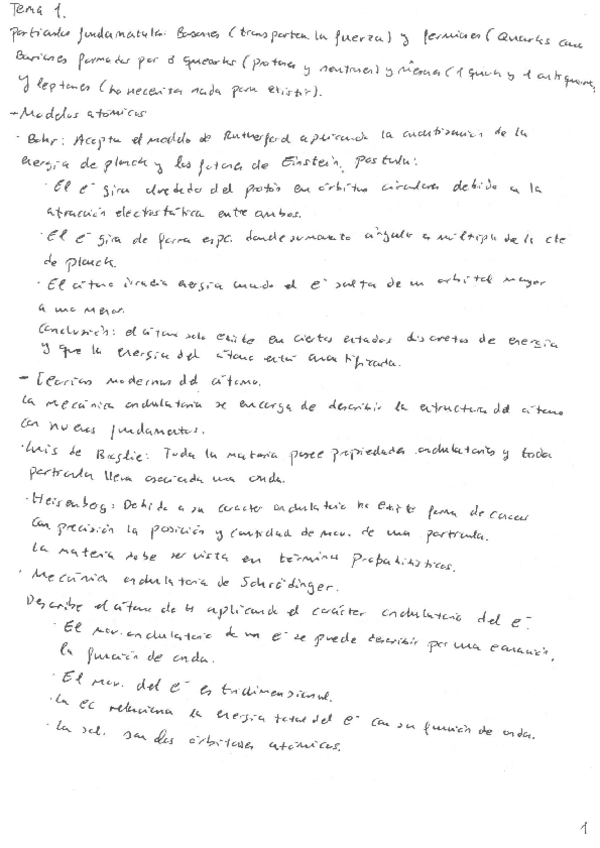 Tema 1.
Partículas fundamentales: Bosones (transportan la fuerza) y fermiones (Quarks
Bariones formados por 3 quarks (protones y neutrones) y Mesones (1 quark y 1 antiquark)
y leptones (no necesitan nada para existir).
- Modelos atómicos
· Bohr: Acepta el modelo de Rutherford aplicando la cuantización de la
energía de planck y los fotones de Einstein, postula:
· El e⁻ gira alrededor del protón en órbitas circulares debido a la
atracción electrostática entre ambos.
· El e⁻ gira de forma espc. donde su momento angular es múltiplo de la cte
de planck.
· El átomo irradia energía cuando el e⁻ salta de un orbital mayor
a uno menor.
Conclusión: el átomo solo existe en ciertos estados discretos de energía
y que la energía del átomo está cuantificada.
- Teorías modernas del átomo.
La mecánica ondulatoria se encarga de describir la estructura del átomo
con nuevos fundamentos.
· Luis de Broglie: Toda la materia posee propiedades ondulatorias y toda
partícula lleva asociada una onda.
· Heisenberg: Debido a su carácter ondulatorio no existe forma de conocer
con precisión la posición y cantidad de mov. de una partícula.
La materia debe ser vista en términos probabilísticos.
· Mecánica ondulatoria de Schrödinger.
Describe el átomo de H aplicando el carácter ondulatorio del e⁻.
· El mov. ondulatorio de un e⁻ se puede describir por una ecuación,
la función de onda.
· El mov. del e⁻ es tridimensional.
· La ec relaciona la energía total del e⁻ con su función de onda.
· La sol. son los órbitales atómicos.
1